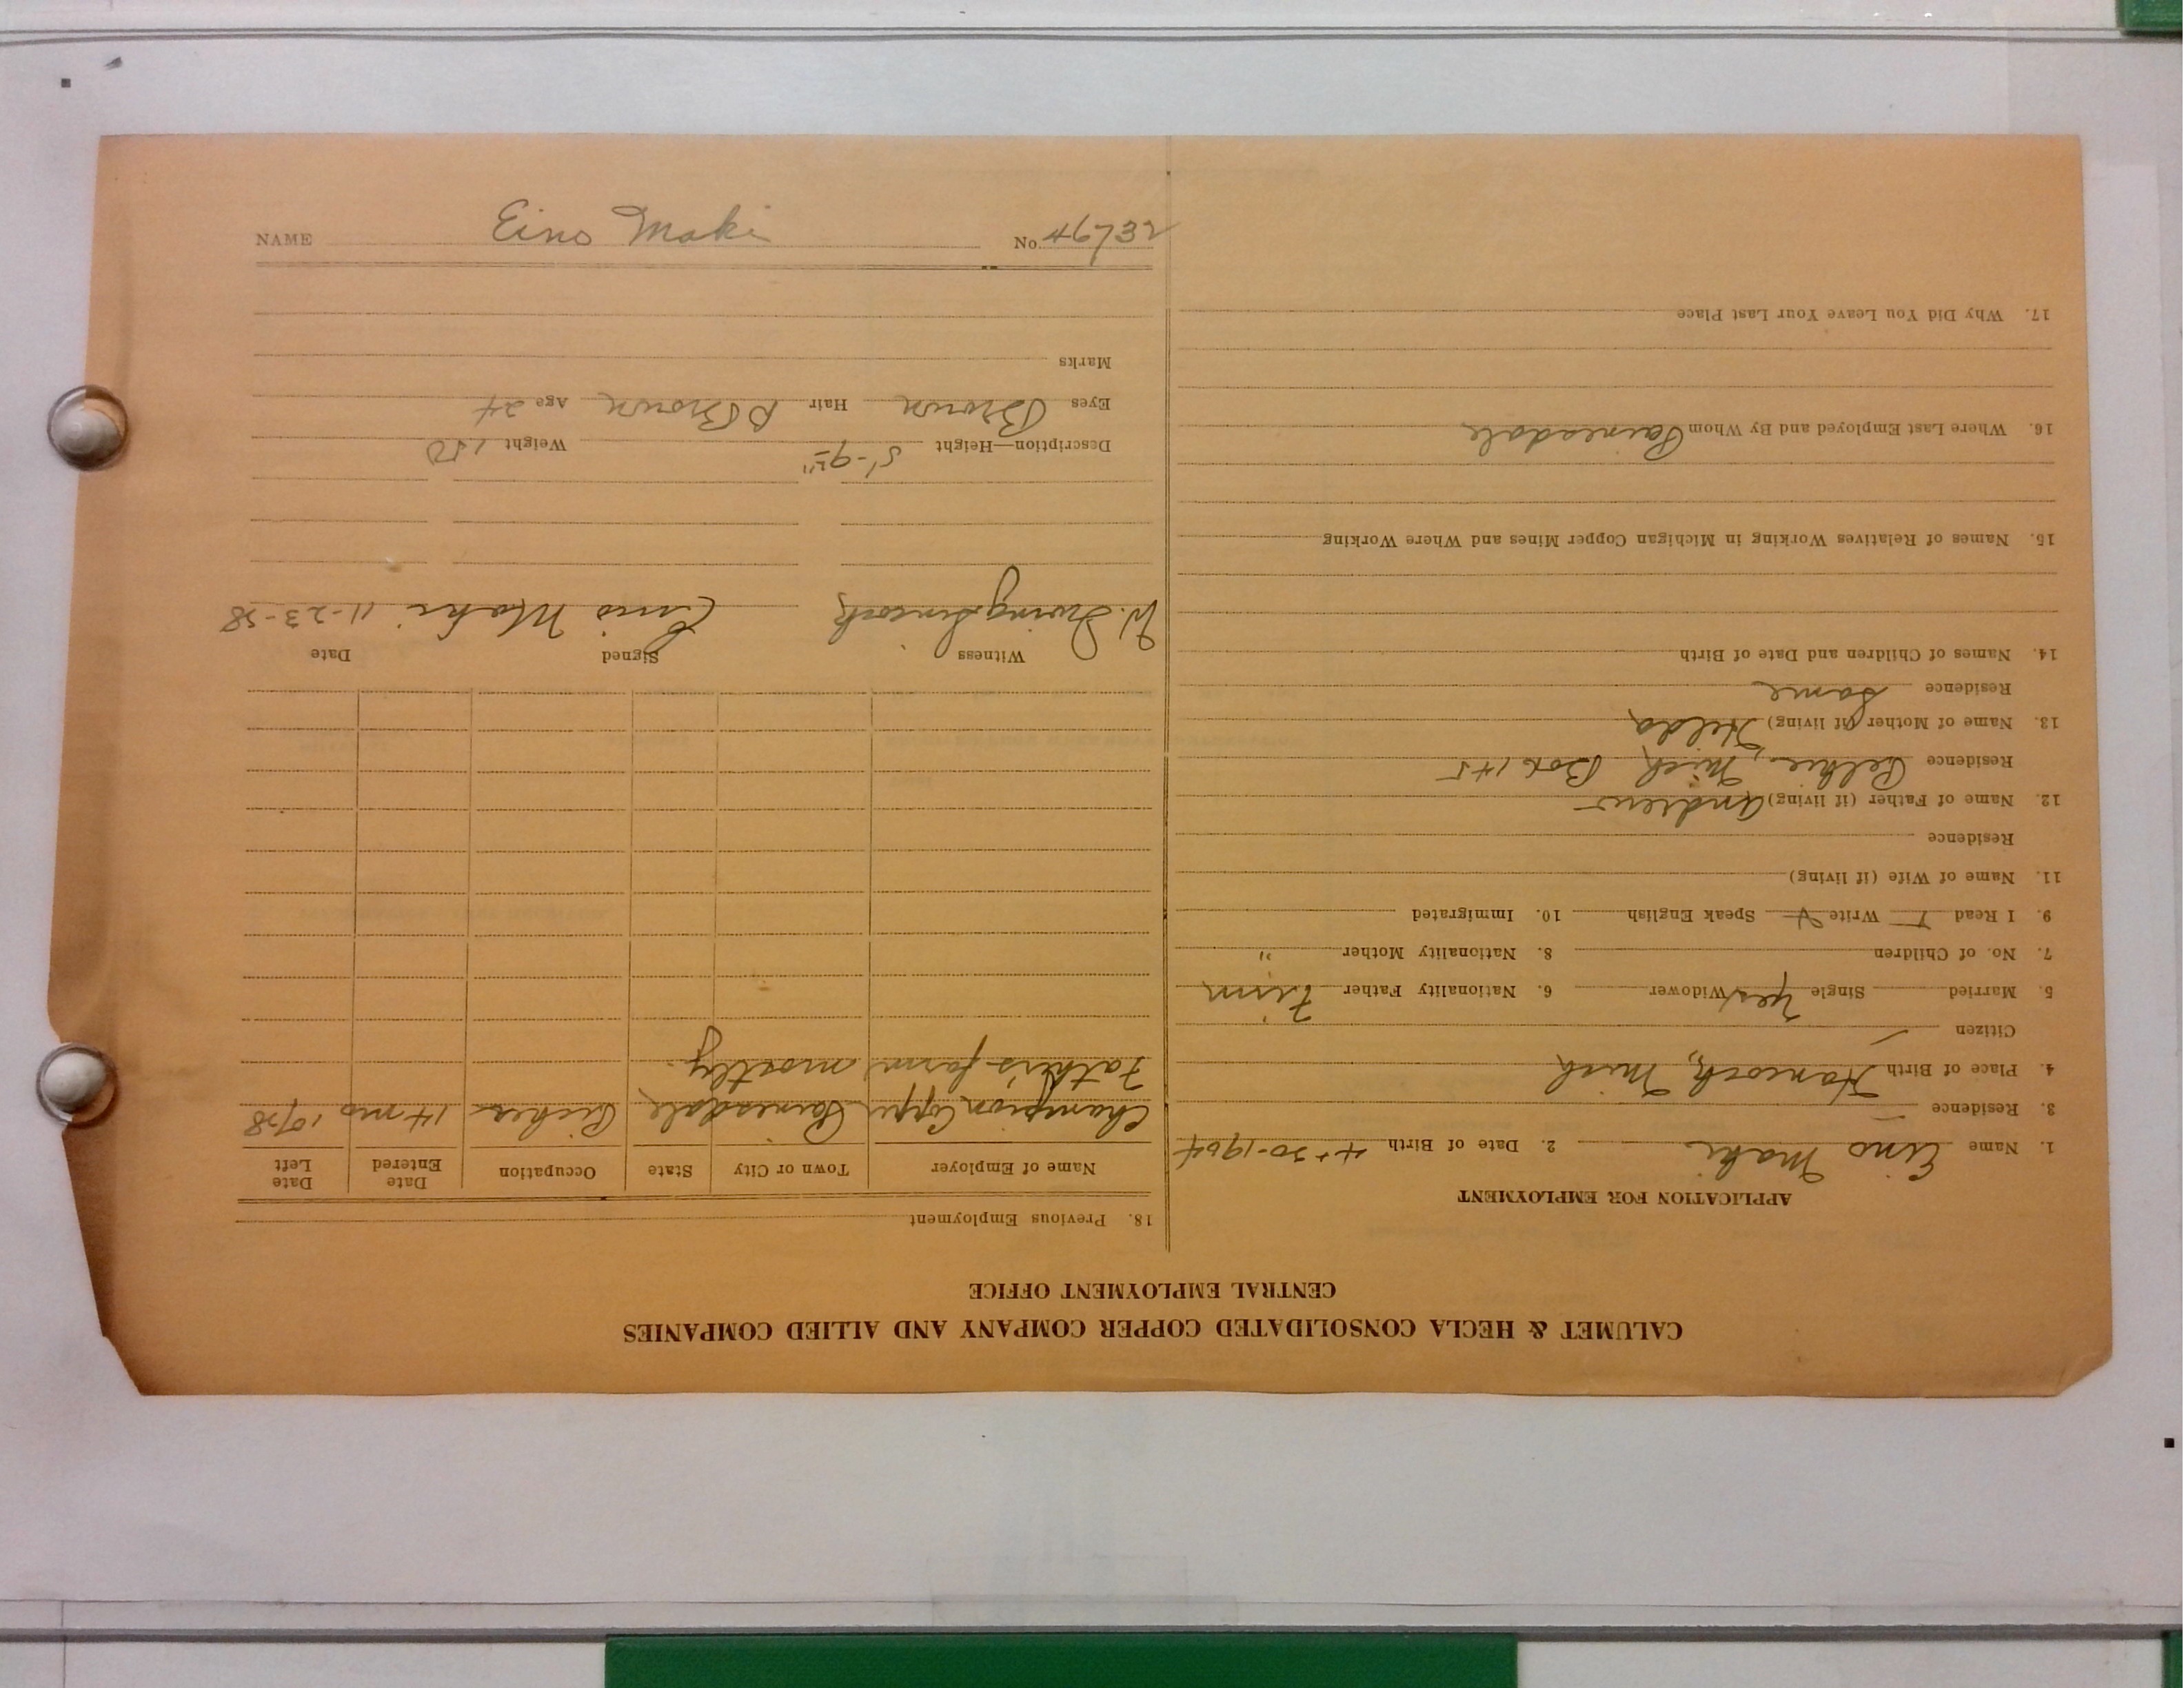 NAME Eino Maki No. 46732
CALUMET & HECLA CONSOLIDATED COPPER COMPANY AND ALLIED COMPANIES
CENTRAL EMPLOYMENT OFFICE
APPLICATION FOR EMPLOYMENT
1. Name Eino Maki 2. Date of Birth 4-30-1904
3. Residence
4. Place of Birth Hancock, Mich
Citizen
5. Married Single yes Widower 6. Nationality Father Finn
7. No. of Children 8. Nationality Mother "
9. I Read Write Speak English 10. Immigrated
11. Name of Wife (if living)
Residence
12. Name of Father (if living) Andrew
Residence Pelkie, Mich Box 145
13. Name of Mother (if living) Hilda
Residence Same
14. Names of Children and Date of Birth
15. Names of Relatives Working in Michigan Copper Mines and Where Working
16. Where Last Employed and By Whom Painesdale
17. Why Did You Leave Your Last Place
18. Previous Employment
Name of Employer Town or City State Occupation Date Entered Date Left
Champion Copper Painesdale 14 mo 10/28
Father's farm mostly.
Witness Signed Date
W. Irving Eino Maki 11-23-28
Description—Height 5'-9" Weight 150
Eyes Brown Hair Brown Age 24
Marks